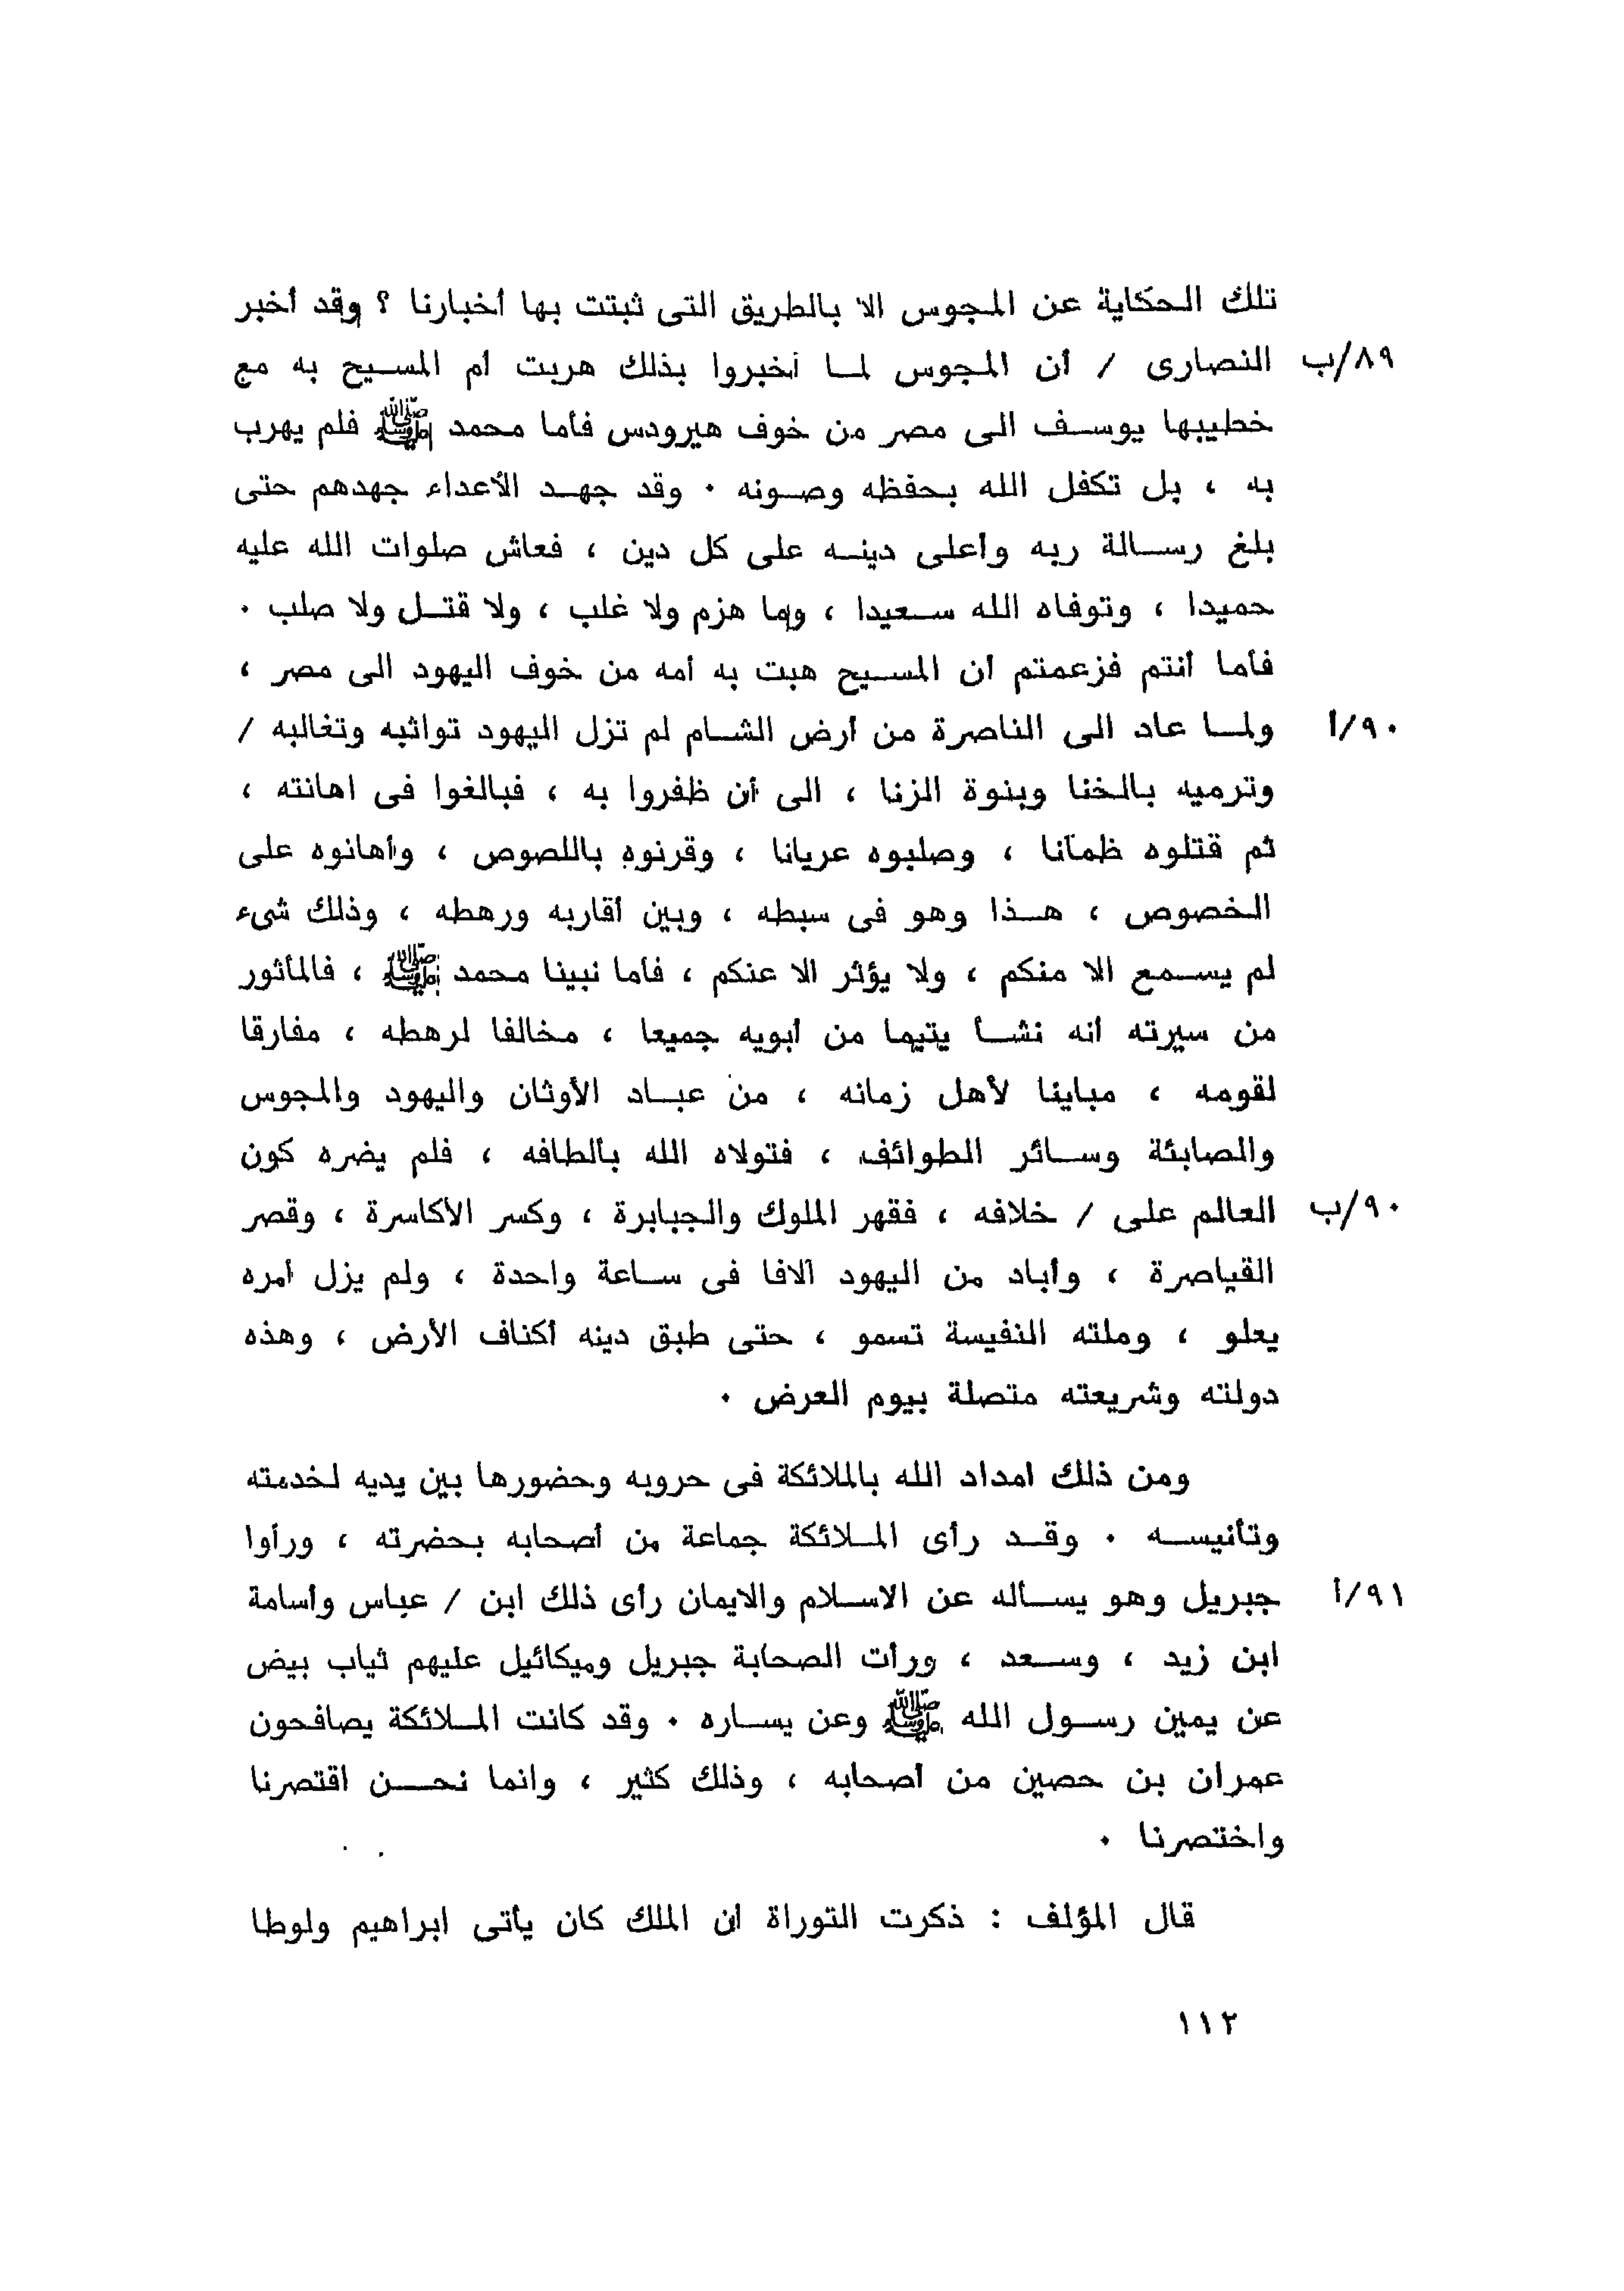 تلك الحكاية عن المجوس الا بالطريق التى ثبتت بها أخبارنا ؟ وقد أخبر
٨٩/ب النصارى / أن المجوس لما أخبروا بذلك هربت أم المسيح به مع
خطيبها يوسف الى مصر من خوف هيرودس فأما محمد ﷺ فلم يهرب
به ، بل تكفل الله بحفظه وصونه ٠ وقد جهد الأعداء جهدهم حتى
بلغ رسالة ربه وأعلى دينه على كل دين ، فعاش صلوات الله عليه
حميدا ، وتوفاه الله سعيدا ، وما هزم ولا غلب ، ولا قتل ولا صلب ٠
فأما أنتم فزعمتم أن المسيح هبت به أمه من خوف اليهود الى مصر ،
٩٠/أ ولما عاد الى الناصرة من أرض الشام لم تزل اليهود تواثبه وتغالبه /
وترميه بالخنا وبنوة الزنا ، الى أن ظفروا به ، فبالغوا فى اهانته ،
ثم قتلوه ظمآنا ، وصلبوه عريانا ، وقرنوه باللصوص ، وأهانوه على
الخصوص ، هذا وهو فى سبطه ، وبين أقاربه ورهطه ، وذلك شىء
لم يسمع الا منكم ، ولا يؤثر الا عنكم ، فأما نبينا محمد ﷺ ، فالمأثور
من سيرته أنه نشأ يتيما من أبويه جميعا ، مخالفا لرهطه ، مفارقا
لقومه ، مباينا لأهل زمانه ، من عباد الأوثان واليهود والمجوس
والصابئة وسائر الطوائف ، فتولاه الله بألطافه ، فلم يضره كون
٩٠/ب العالم على / خلافه ، فقهر الملوك والجبابرة ، وكسر الأكاسرة ، وقصر
القياصرة ، وأباد من اليهود آلافا فى ساعة واحدة ، ولم يزل أمره
يعلو ، وملته النفيسة تسمو ، حتى طبق دينه أكناف الأرض ، وهذه
دولته وشريعته متصلة بيوم العرض ٠
ومن ذلك امداد الله بالملائكة فى حروبه وحضورها بين يديه لخدمته
وتأنيسه ٠ وقد رأى الملائكة جماعة من أصحابه بحضرته ، ورأوا
٩١/أ جبريل وهو يسأله عن الاسلام والايمان رأى ذلك ابن / عباس وأسامة
ابن زيد ، وسعد ، ورأت الصحابة جبريل وميكائيل عليهم ثياب بيض
عن يمين رسول الله ﷺ وعن يساره ٠ وقد كانت الملائكة يصافحون
عمران بن حصين من أصحابه ، وذلك كثير ، وانما نحن اقتصرنا
واختصرنا ٠
قال المؤلف : ذكرت التوراة أن الملك كان يأتى ابراهيم ولوطا
١١٢